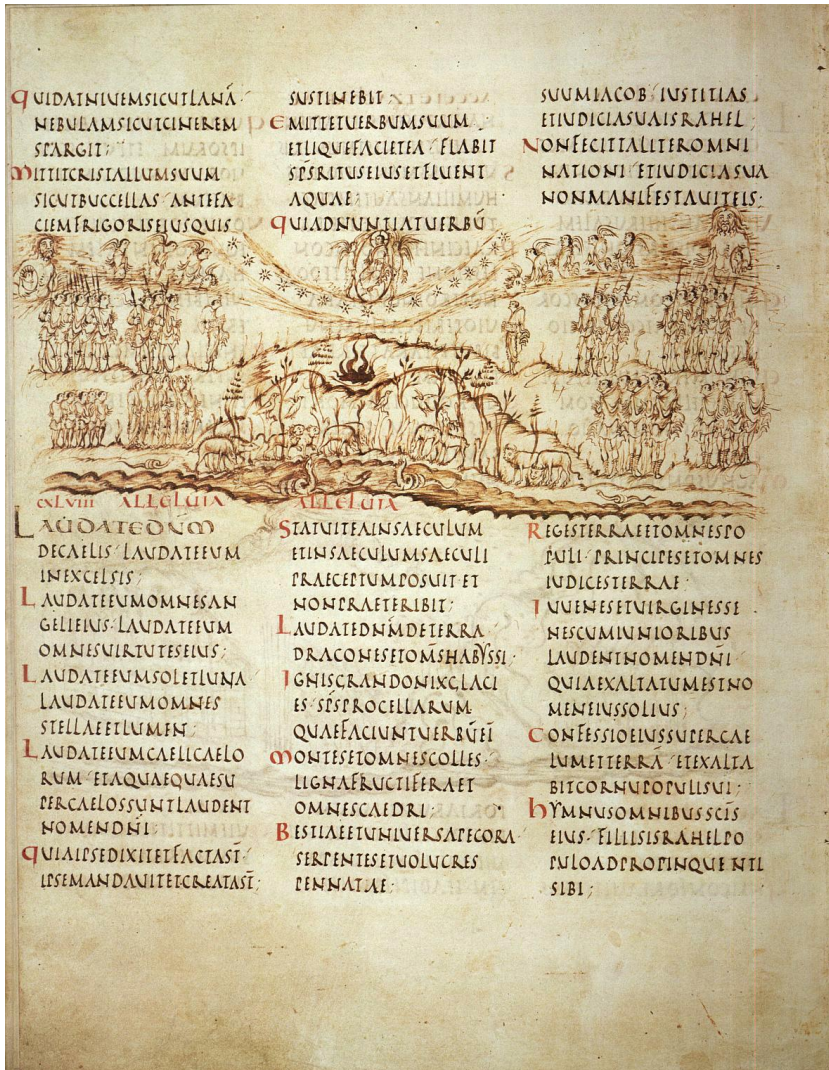 QUIDATNIUEMSICUTLANĀ
NEBULAMSICUTCINEREM
SPARGIT;
MITTITCRISTALLUMSUUM
SICUTBUCCELLAS ANTEFA
CIEMFRIGORISEIUSQUIS
SUSTINEBIT
EMITTETUERBUMSUUM
ETLIQUEFACIETEA FLABIT
SPSRITUSEIUSETFLUENT
AQUAE
QUIADNUNTIATUERBŪ
SUUMIACOB IUSTITIAS
ETIUDICIASUAISRAHEL;
NONFECITTALITEROMNI
NATIONI ETIUDICIASUA
NONMANIFESTAUITEIS;
CXLVIII ALLELUIA
LAUDATEDNM
DECAELIS LAUDATEEUM
INEXCELSIS;
LAUDATEEUMOMNESAN
GELIEIUS LAUDATEEUM
OMNESUIRTUTESEIUS;
LAUDATEEUMSOLETLUNA
LAUDATEEUMOMNES
STELLAEETLUMEN;
LAUDATEEUMCAELICAELO
RUM ETAQUAEQUAESU
PERCAELOSSUNTLAUDENT
NOMENDN̄I;
QUIAIPSEDIXITETFACTAST̄
IPSEMANDAUITETCREATAST̄;
ALLELUIA
STATUITEAINSAECULUM
ETINSAECULUMSAECULI
PRAECEPTUMPOSUIT ET
NONPRAETERIBIT;
LAUDATEDN̄MDETERRA
DRACONESETOM̄SHABYSSI
IGNISGRANDONIXGLACI
ES SP̄SPROCELLARUM
QUAEFACIUNTUERBŪEI
MONTESETOMNESCOLLES
LIGNAFRUCTIFERAET
OMNESCAEDRI
BESTIAEETUNIUERSAPECORA
SERPENTESETUOLUCRES
PENNATAE;
REGESTERRAEETOMNESPO
PULI PRINCIPESETOMNES
IUDICESTERRAE
IUUENESETUIRGINESSE
NESCUMIUNIORIBUS
LAUDENTNOMENDN̄I
QUIAEXALTATUMESTNO
MENEIUSSOLIUS;
CONFESSIOEIUSSUPERCAE
LUMETTERRĀ ETEXALTA
BITCORNUPOPULISUI;
HYMNUSOMNIBUSSCĪS
EIUS FILIISISRAHELPO
PULOADPROPINQUENTI
SIBI;